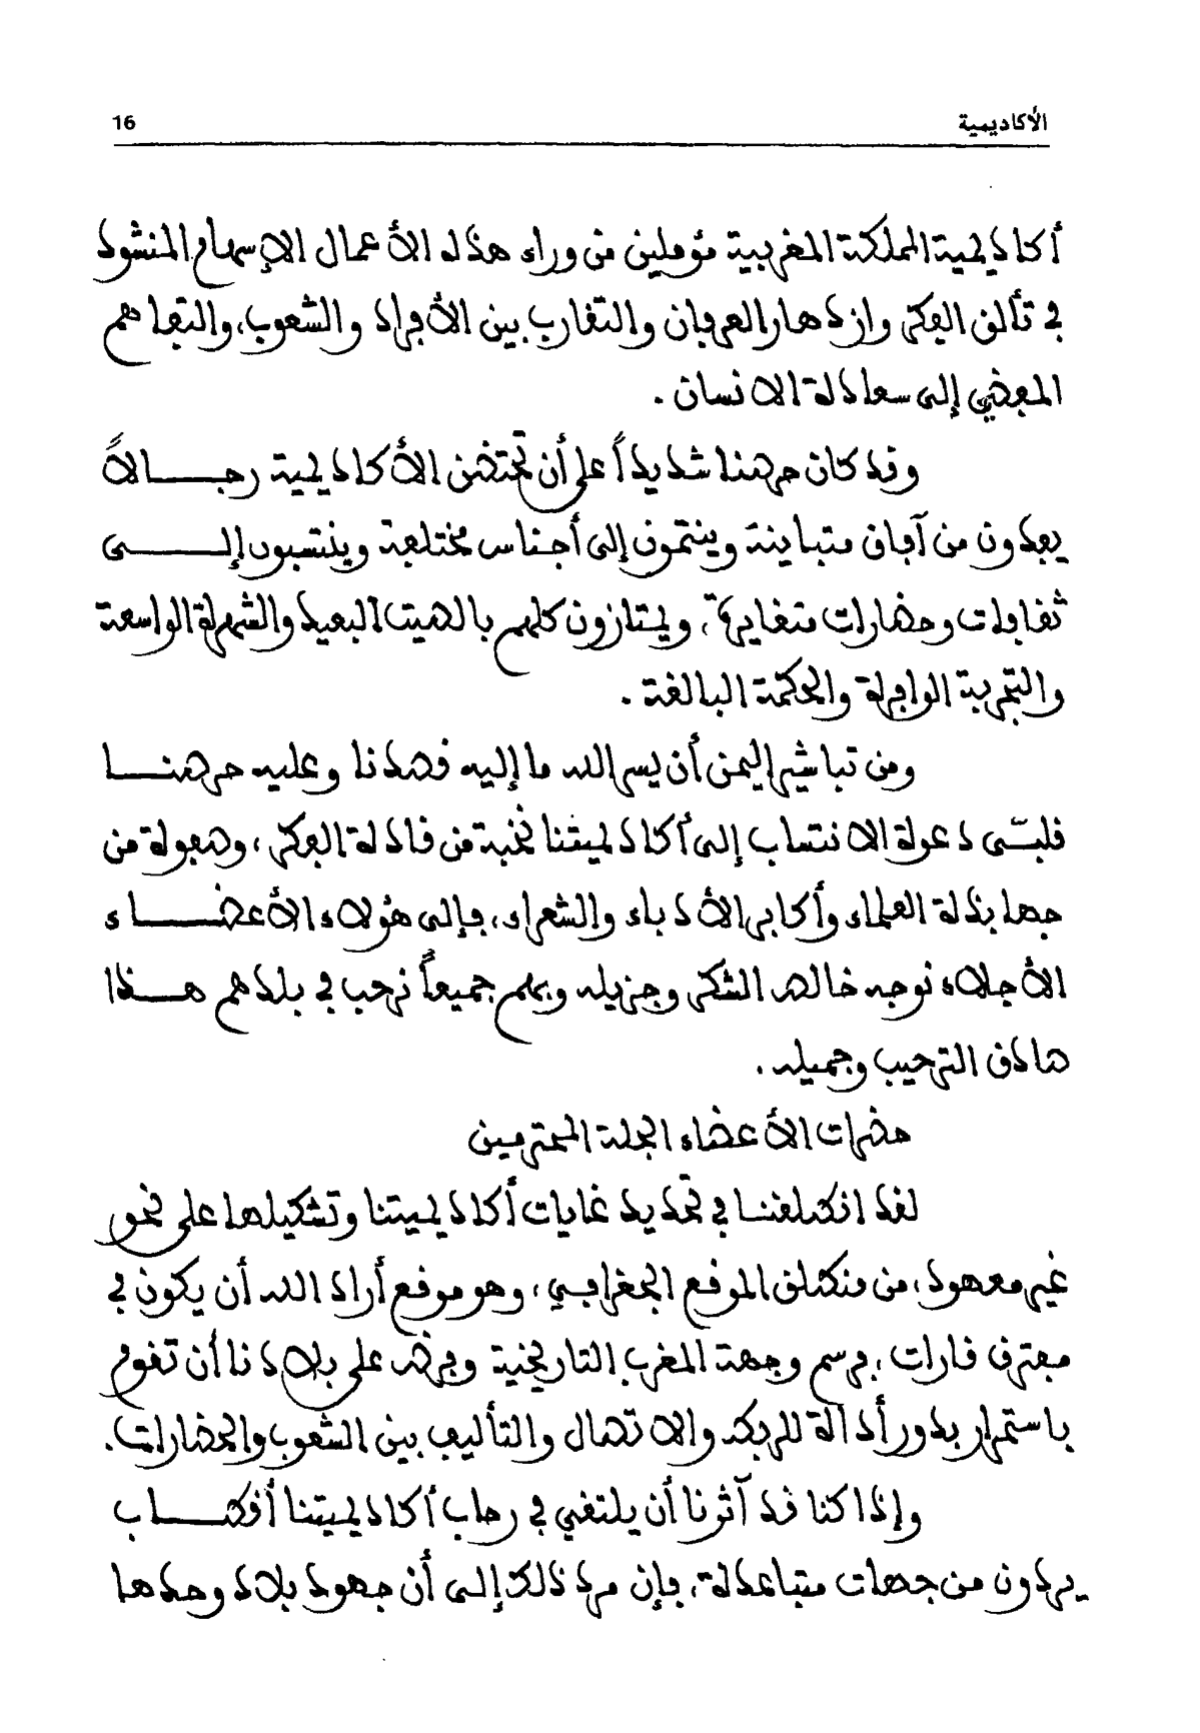 الأكاديمية 16
أكاديمية المملكة المغربية مؤملين من وراء هذه الأعمال الإسهام المنشود
في تألق الفكر وازدهار العرفان والتقارب بين الأفراد والشعوب، والتفاهم
المفضي إلى سعادة الانسان.
وقد كان حرصنا شديداً على أن تحتضن الأكاديمية رجالاً
يفدون من آفاق متباينة وينتمون إلى أجناس مختلفة وينتسبون إلى
ثقافات وحضارات متغايرة، ويمتازون كلهم بالصيت البعيد والشهرة الواسعة
والتجربة الوافرة والحكمة البالغة.
ومن تباشير اليمن أن يسر الله ما إليه قصدنا وعليه حرصنا
فلبّى دعوة الانتساب إلى أكاديميتنا نخبة من قادة الفكر، وصفوة من
جهابذة العلماء وأكابر الأدباء والشعراء، فإلى هؤلاء الأعضاء
الأجلاء نوجه خالص الشكر وجزيله وبهم جميعاً نرحب في بلدهم هذا
صادق الترحيب وجميله.
حضرات الأعضاء الجلة المحترمين
لقد انطلقنا في تحديد غايات أكاديميتنا وتشكيلها على نحو
غير معهود، من منطلق الموقع الجغرافي، وهو موقع أراد الله أن يكون في
مفترق قارات، فرسم وجهة المغرب التاريخية وفرض على بلادنا أن تقوم
باستمرار بدور أداة للربط والاتصال والتأليف بين الشعوب والحضارات.
وإذا كنا قد آثرنا أن يلتقي في رحاب أكاديميتنا أقطاب
يردون من جهات متباعدة، فإن مرد ذلك إلى أن جهود بلاد وحدها